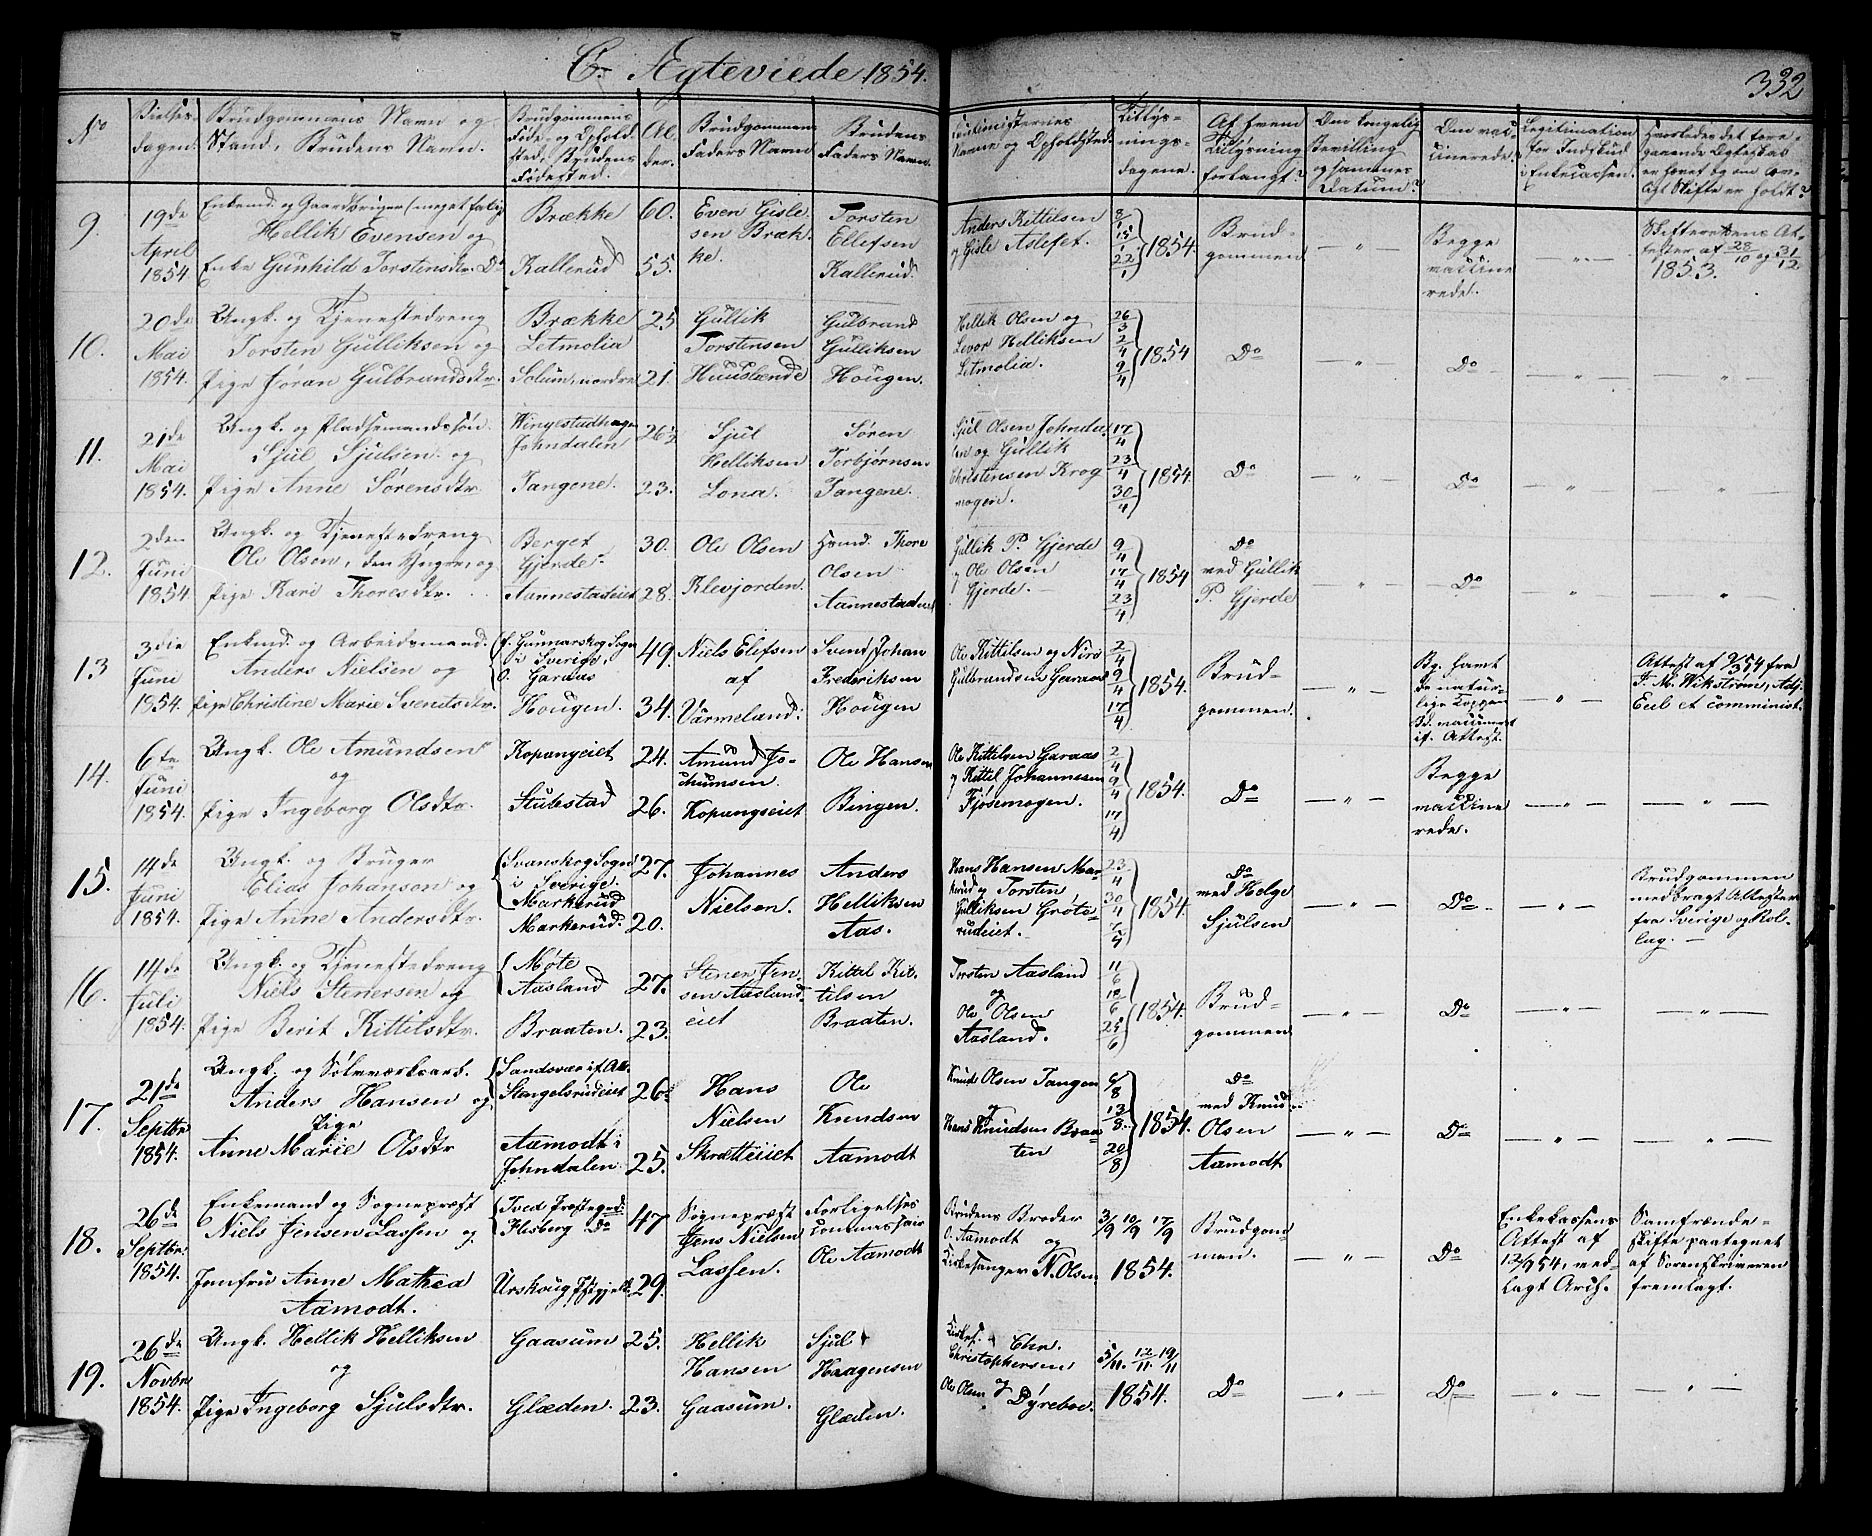 C. Ægteviede 1854.
332
No
Vielses-
dagen.
Brudgommens Navn og
Stand, Brudens Navn.
Brudgommens
Føde- og Ophold-
sted, Brudens
Fødested.
Al-
der.
Brudgommens
Faders Navn
Brudens
Faders Navn.
Navne og Opholdsted.
Tillys-
nings-
dagene.
Af hvem
Tillysning
forlangt?
Den kongelig
Bevilling
og sammes
Datum?
Om vac-
cinerede.
Legitimation
for Indskud
i Enkecassen.
Hvorledes det fore-
gaaende Ægteskab
er hævet og om lov-
ligt Skifte er holdt?
9.
19de
April
1854
Enkemd. og Gaardbruger (meget fattig)
Hellik Evensen og
Enke Gunhild Torstensdtr. Do
Brække
Kallerud
60.
55.
Even Gisle-
sen Bræk-
ke.
Torsten
Ellefsen
Kallerud.
Anders Kittilsen
og Gisle Aslefet.
8/1 15/1 22/1 } 1854.
Brud-
gommen
— „ —
Begge
vaccine-
rede.
— „ —
Skifterettens At-
tester af 28/10 og 31/12
1853.
10.
20de
Mai
1854.
Ungk. og Tjenestedreng
Torsten Gulliksen og
Pige Jøran Gulbrandsdtr.
Brække
Letmolia
Solum, nordre
25
21.
Gullik
Torstensen
Huuslende
Gulbrand
Gulliksen
Hougen.
Hellik Olsen og
Levor Helliksen
Letmolia.
26/3 2/4 9/4 } 1854
Do
— „ —
Do
— „ —
— „ —
11.
21de
Mai
1854.
Ungk. og Pladsemandssøn
Sjul Sjulsen og
Pige Anne Sørensdtr.
Wingestadhagen
Johndalen
Tangene.
26½
23.
Sjul
Helliksen
Lona.
Søren
Torbjørnsen
Tangene.
Sjul Olsen Johnda-
len og Gullik
Christensen Krog-
mogen.
17/4 23/4 30/4 } 1854
Do
— „ —
Do
— „ —
— „ —
12.
2den
Juni
1854
Ungk. og Tjenestedreng
Ole Olsen, den Yngre, og
Pige Kari Thoresdtr.
Berget
Gjerde.
Aannestadeiet
30.
28.
Ole Olsen
Klevjorden.
Thore
Olsen
Aannestadeiet
Gullik P. Gjerde
og Ole Olsen
Gjerde.
9/4 17/4 23/4 } 1854
Do
med Gullik
P. Gjerde
— „ —
Do
— „ —
— „ —
13
3die
Juni
1854.
Enkmd. og Arbeidsmand.
Anders Nielsen og
Pige Christine Marie Svendsdtr.
f. Gunnarskog Sogn
i Sverige,
o. Garaas
Hougen.
49.
34.
Niels Elifsen
af
Värmeland.
Svend Johan
Frederiksen
Hougen
Ole Kittilsen og Niri
Gulbrandsen Garaas
2/4 9/4 17/4 } 1854.
Brud-
gommen.
— „ —
Bg. havt
de natur-
lige Kopper
Bd. vaccineret
if. Attest.
— „ —
Attest af 9/3 54 fra
F. M. Wikström, Adj.
Eccl et comminist.
14.
6te
Juni
1854.
Ungk. Ole Amundsen
og
Pige Ingeborg Olsdtr.
Kopangeiet
Stulestad
24.
26.
Amund Jo-
chumsen.
Kopangseiet
Ole Hansen
Bingen.
Ole Kittilsen Garaas
og Kittil Johannesen
Fjøsemogen.
2/4 9/4 17/4 } 1854.
Do
— „ —
Begge
vaccine-
rede.
— „ —
— „ —
15.
14de
Juni
1854.
Ungk. og Bruger
Elias Johanson og
Pige Anne Andersdtr.
Svanskog Sogn
i Sverige.
Markerud
Markerud.
27.
20.
Johannes
Nielsen.
Anders
Helliksen
Aas.
Hans Hansen Mar-
kerud og Torsten
Gulliksen Grøte-
rudeiet.
23/4 30/4 /5 } 1854.
Do
med Helge
Sjulsen
— „ —
Do
— „ —
Brudgommen
medbragt Attester
fra Sverige og Rol-
lag. —
16.
14de
Juli
1854.
Ungk. og Tjenestedreng
Niels Stenersen og
Pige Berit Kittilsdtr.
Møte
Aasland
Braaten.
27.
23.
Stener Jen-
sen Aasland-
eiet
Kittil Kit-
tilsen
Braaten.
Torsten Aasland
og
Ole Olsen
Aasland.
11/6 18/6 25/6 } 1854.
Brud-
gommen
— „ —
Do
— „ —
— „ —
17.
21de
Septbr.
1854.
Ungk. og Sølvværksarb.
Anders Hansen og
Pige
Anne Marie Olsdtr
Sandsvær if. Att.
Stengelsrudeiet
Aamodt i
Johndalen
26.
25.
Hans
Nielsen
Skrætteiiet
Ole
Knudsen
Aamodt
Knud Olsen Tangen
og
Hans Knudsen Braa-
ten
6/8 13/8 20/8 } 1854.
Do
med Knud
Olsen
Aamodt
— „ —
Do
— „ —
— „ —
18.
26de
Septbr.
1854.
Enkemand og Sognepræst
Niels Jensen Lassen og
Jomfru Anne Mathea
Aamodt.
Tved Præstegd.
Flesberg Do
Urskoug Pstgjeld.
47
29.
Sognepræst
Jens Nielsen
Lassen.
Forligelses
commissair
Ole Aamodt
Brudens Broder
O. Aamodt og
Kirkesanger N. Olsen
3/9 10/9 17/9
1854.
Brudgom-
men.
— „ —
Do
Enkekassens
Attest af
12/9 54, ved-
lagt Arch.
Samfrænde-
skifte paategnet
af Sorenskriveren
fremlagt.
19.
26de
Novbr.
1854.
Ungk. Hellik Helliksen
og
Pige Ingeborg Sjulsdtr.
Gaasum
Glæden.
25.
23.
Hellik
Hansen
Gaasum.
Sjul
Haagensen
Glæden.
Kirkes. Chr.
Christophersen,
Ole Olsen og Dyreboe.
5/11. 12/11. 19/11
1854.
Do
— „ —
Do
— „ —
— „ —